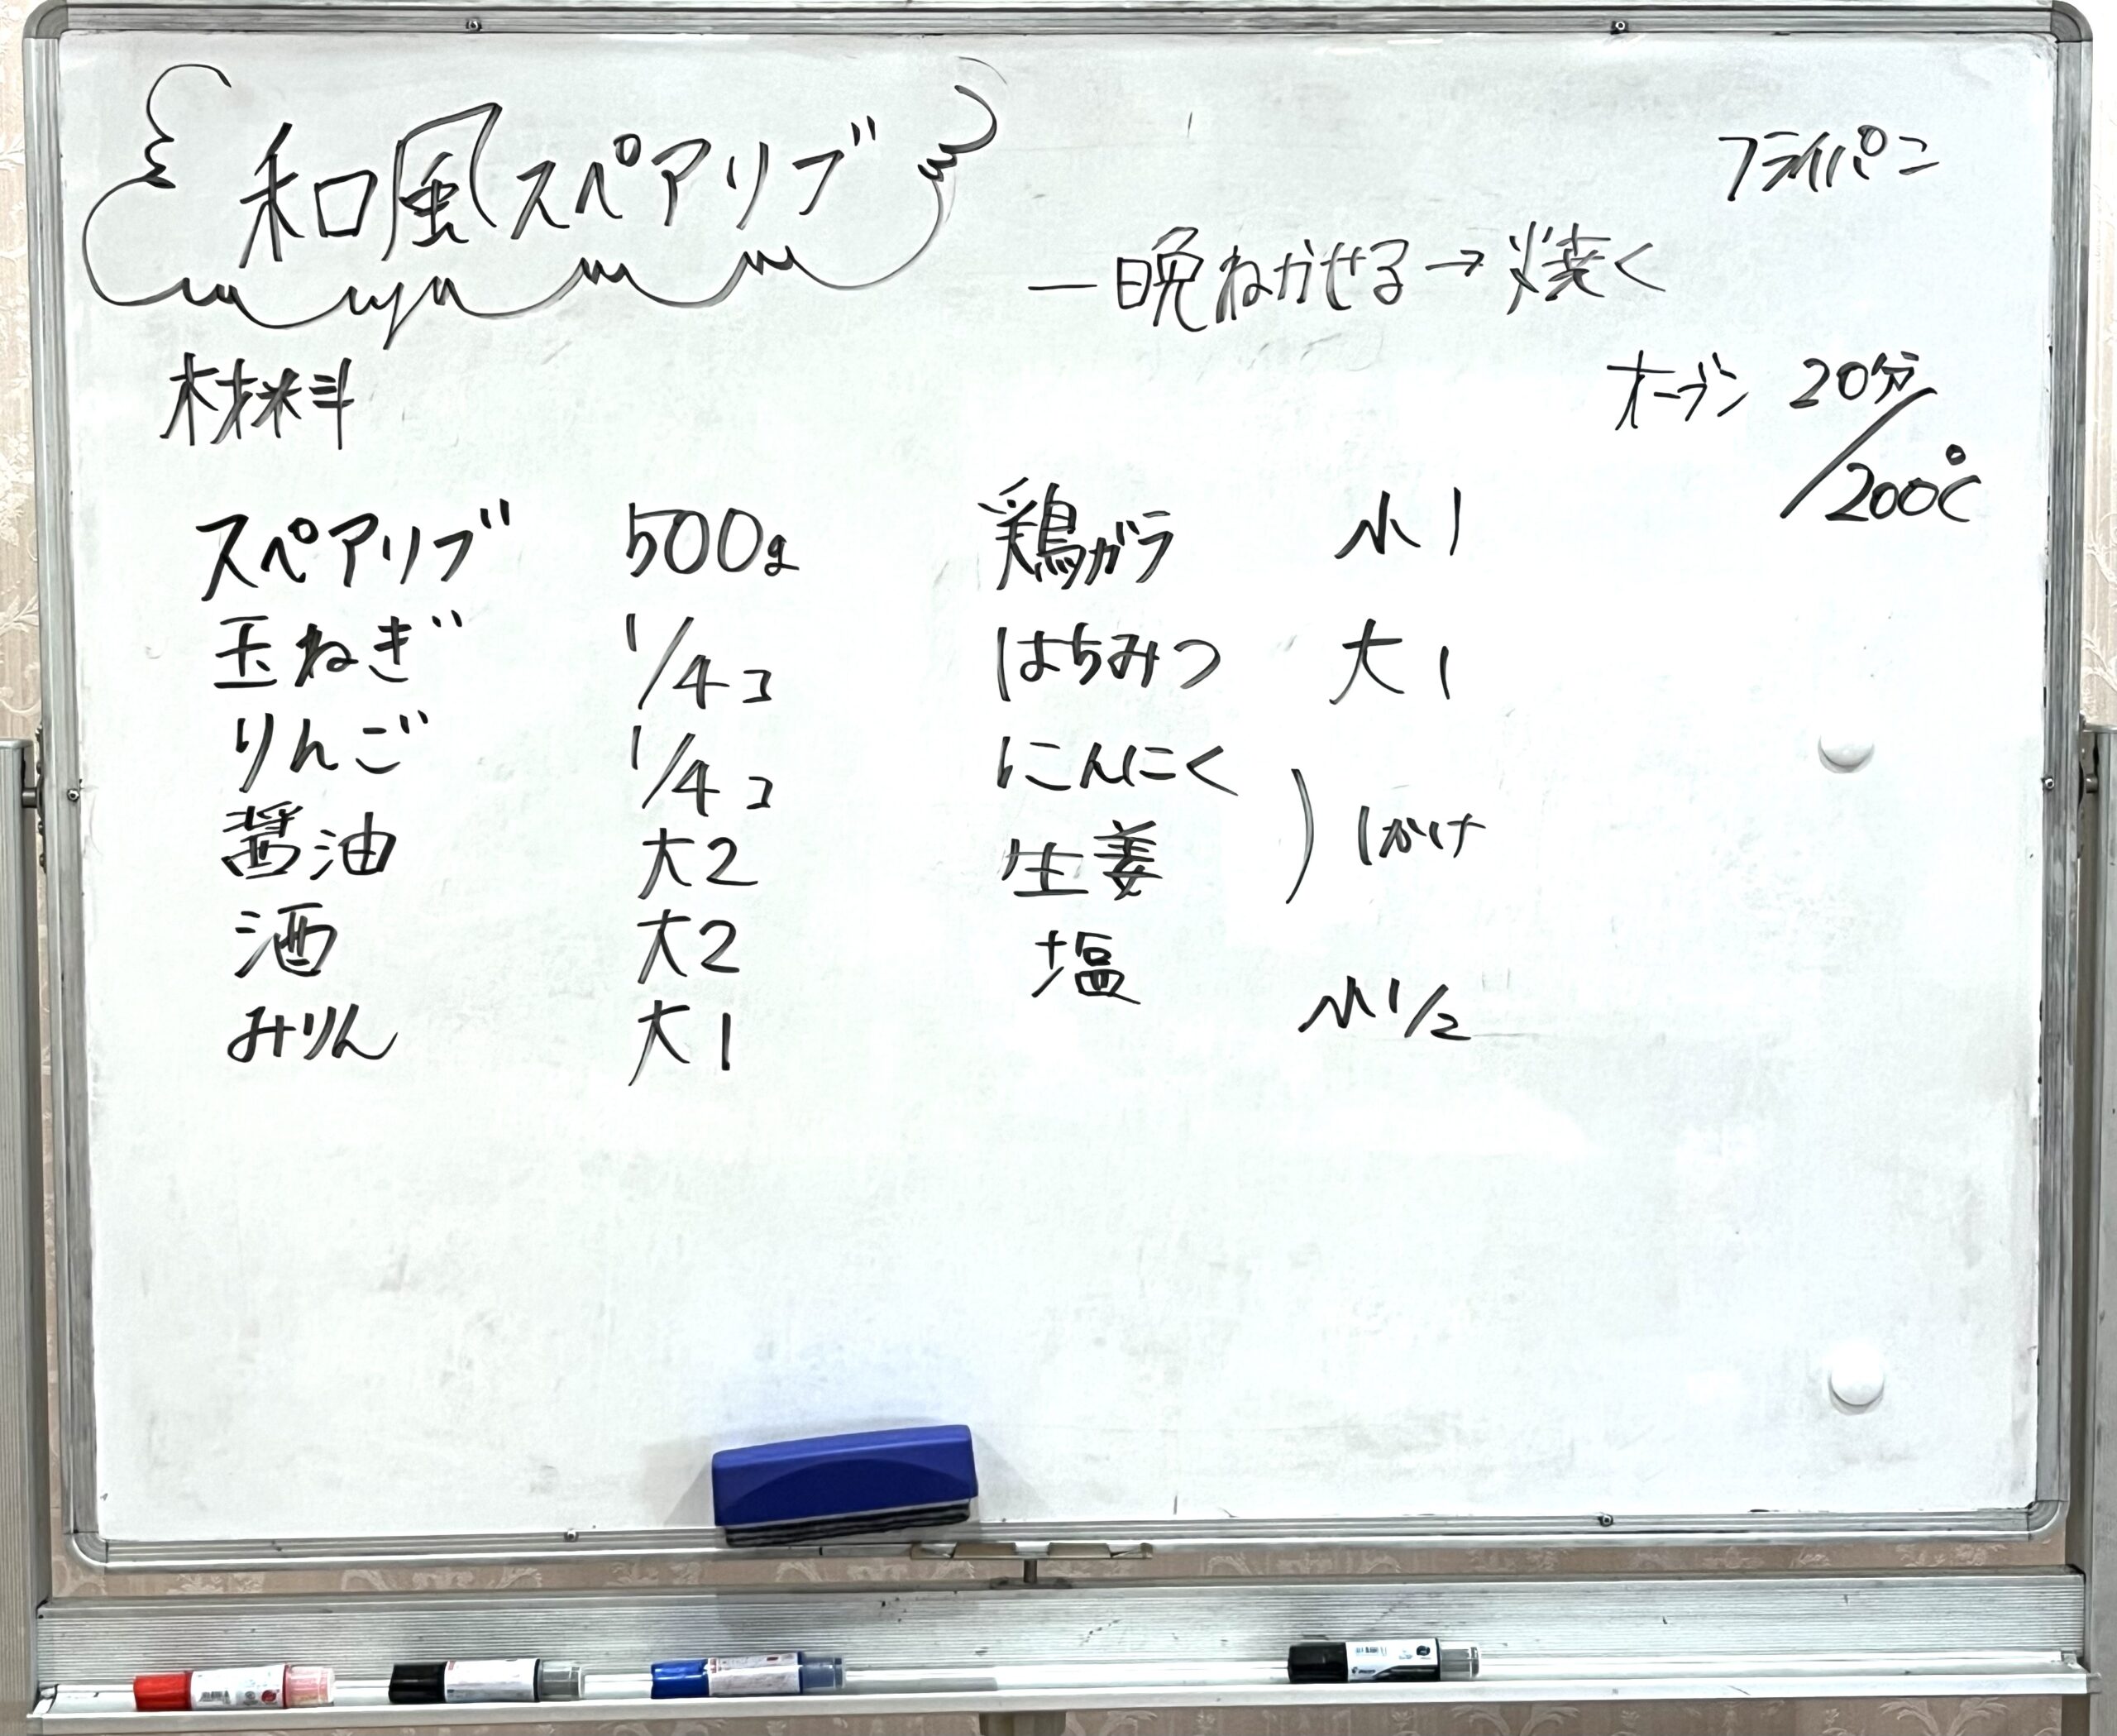 和風スペアリブ
フライパン
一晩ねかせる→焼く
オーブン 20分/200℃
材料
スペアリブ 500g
玉ねぎ 1/4コ
りんご 1/4コ
醤油 大2
酒 大2
みりん 大1
鶏ガラ 小1
はちみつ 大1
にんにく
生姜 ) 1かけ
塩 小1/2